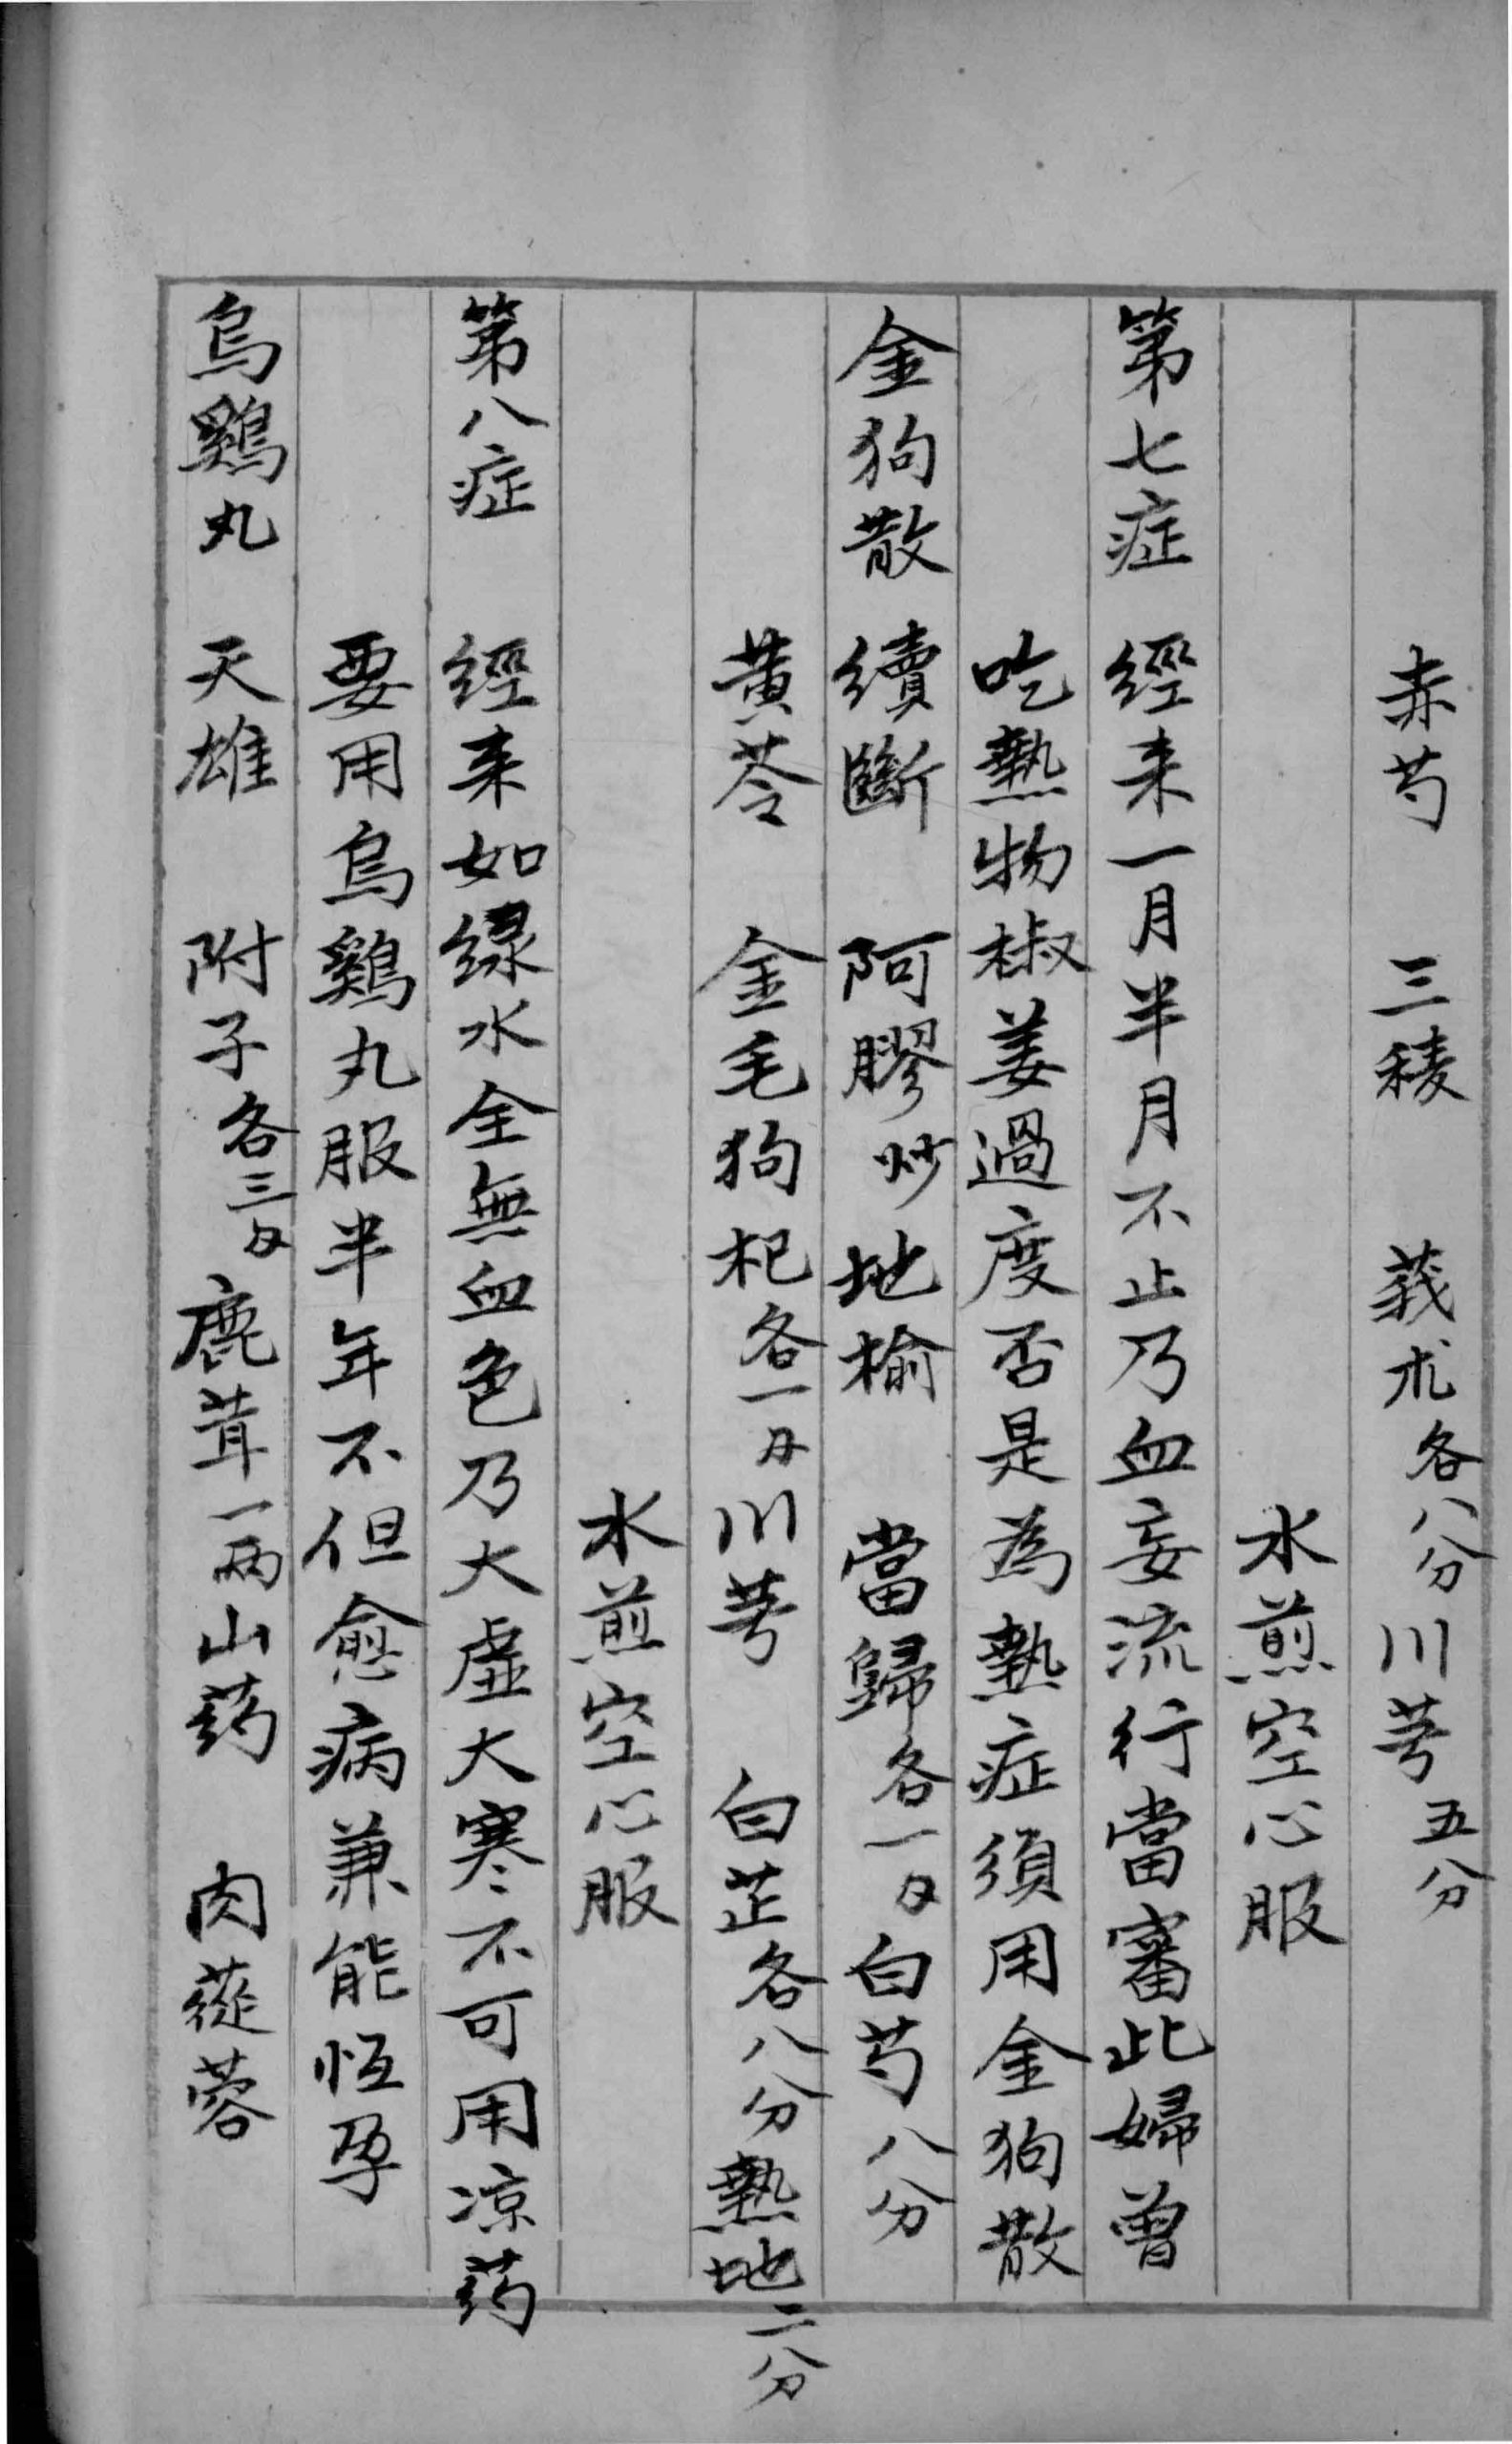 赤芍 三稜 莪朮各八分川芎五分
水煎空心服
第七症 經来一月半月不止乃血妄流行當審此婦曾
吃熱物椒姜過度否是為熱症須用金狗散
金狗散 續斷 阿膠炒地榆 當歸各一錢白芍八分
黄苓 金毛狗杞各一錢川芎 白芷各八分熟地二分
水煎空心服
第八症 經来如綠水全無血色乃大虛大寒不可用凉药
要用烏鷄丸服半年不但愈病兼能恒孕
烏鷄丸 天雄 附子各三錢鹿茸一兩山药 肉蓯蓉